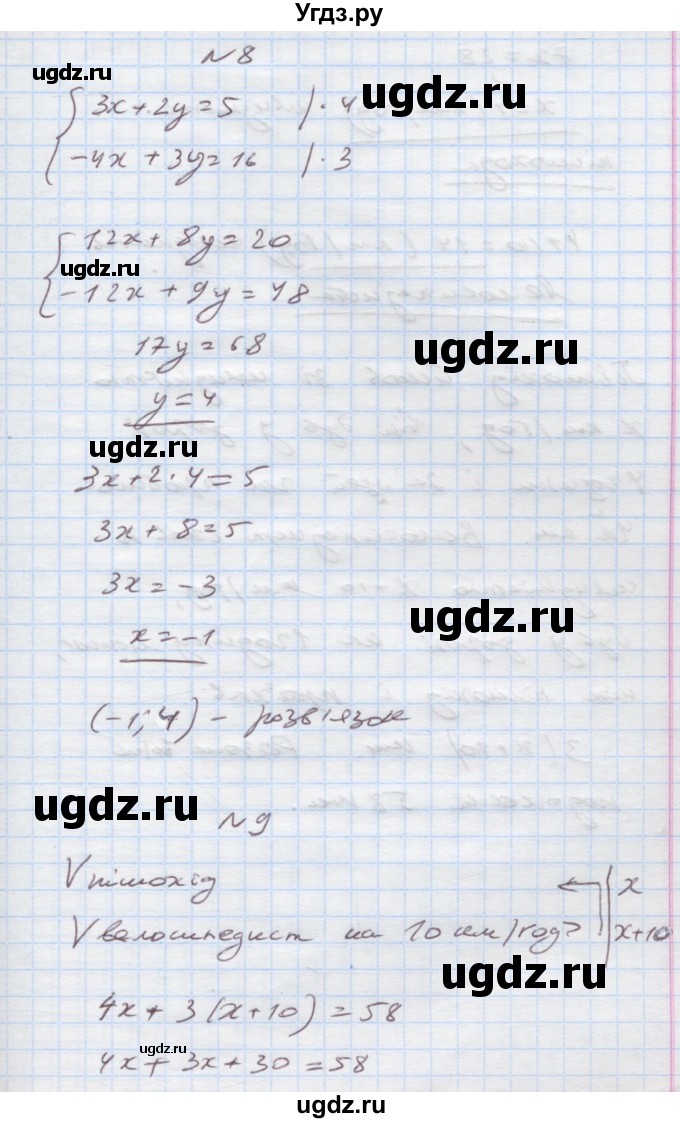 Угдз.ру
N8
ugdz.ru
3x+2y=5 |·4
ugdz.ru
-4x+3y=16 |·3
12x+8y=20
ugdz.ru
-12x+9y=48
17y=68
ugdz.ru
y=4
ugdz.ru
3x+2·4=5
3x+8=5
3x=-3
ugdz.ru
x=-1
(-1;4) - розв'язок
ugdz.ru
N9
V пішохід x
V велосипедист на 10 км/год > x+10
ugdz.ru
4x+3(x+10)=58
ugdz.ru
4x+3x+30=58
ugdz.ru